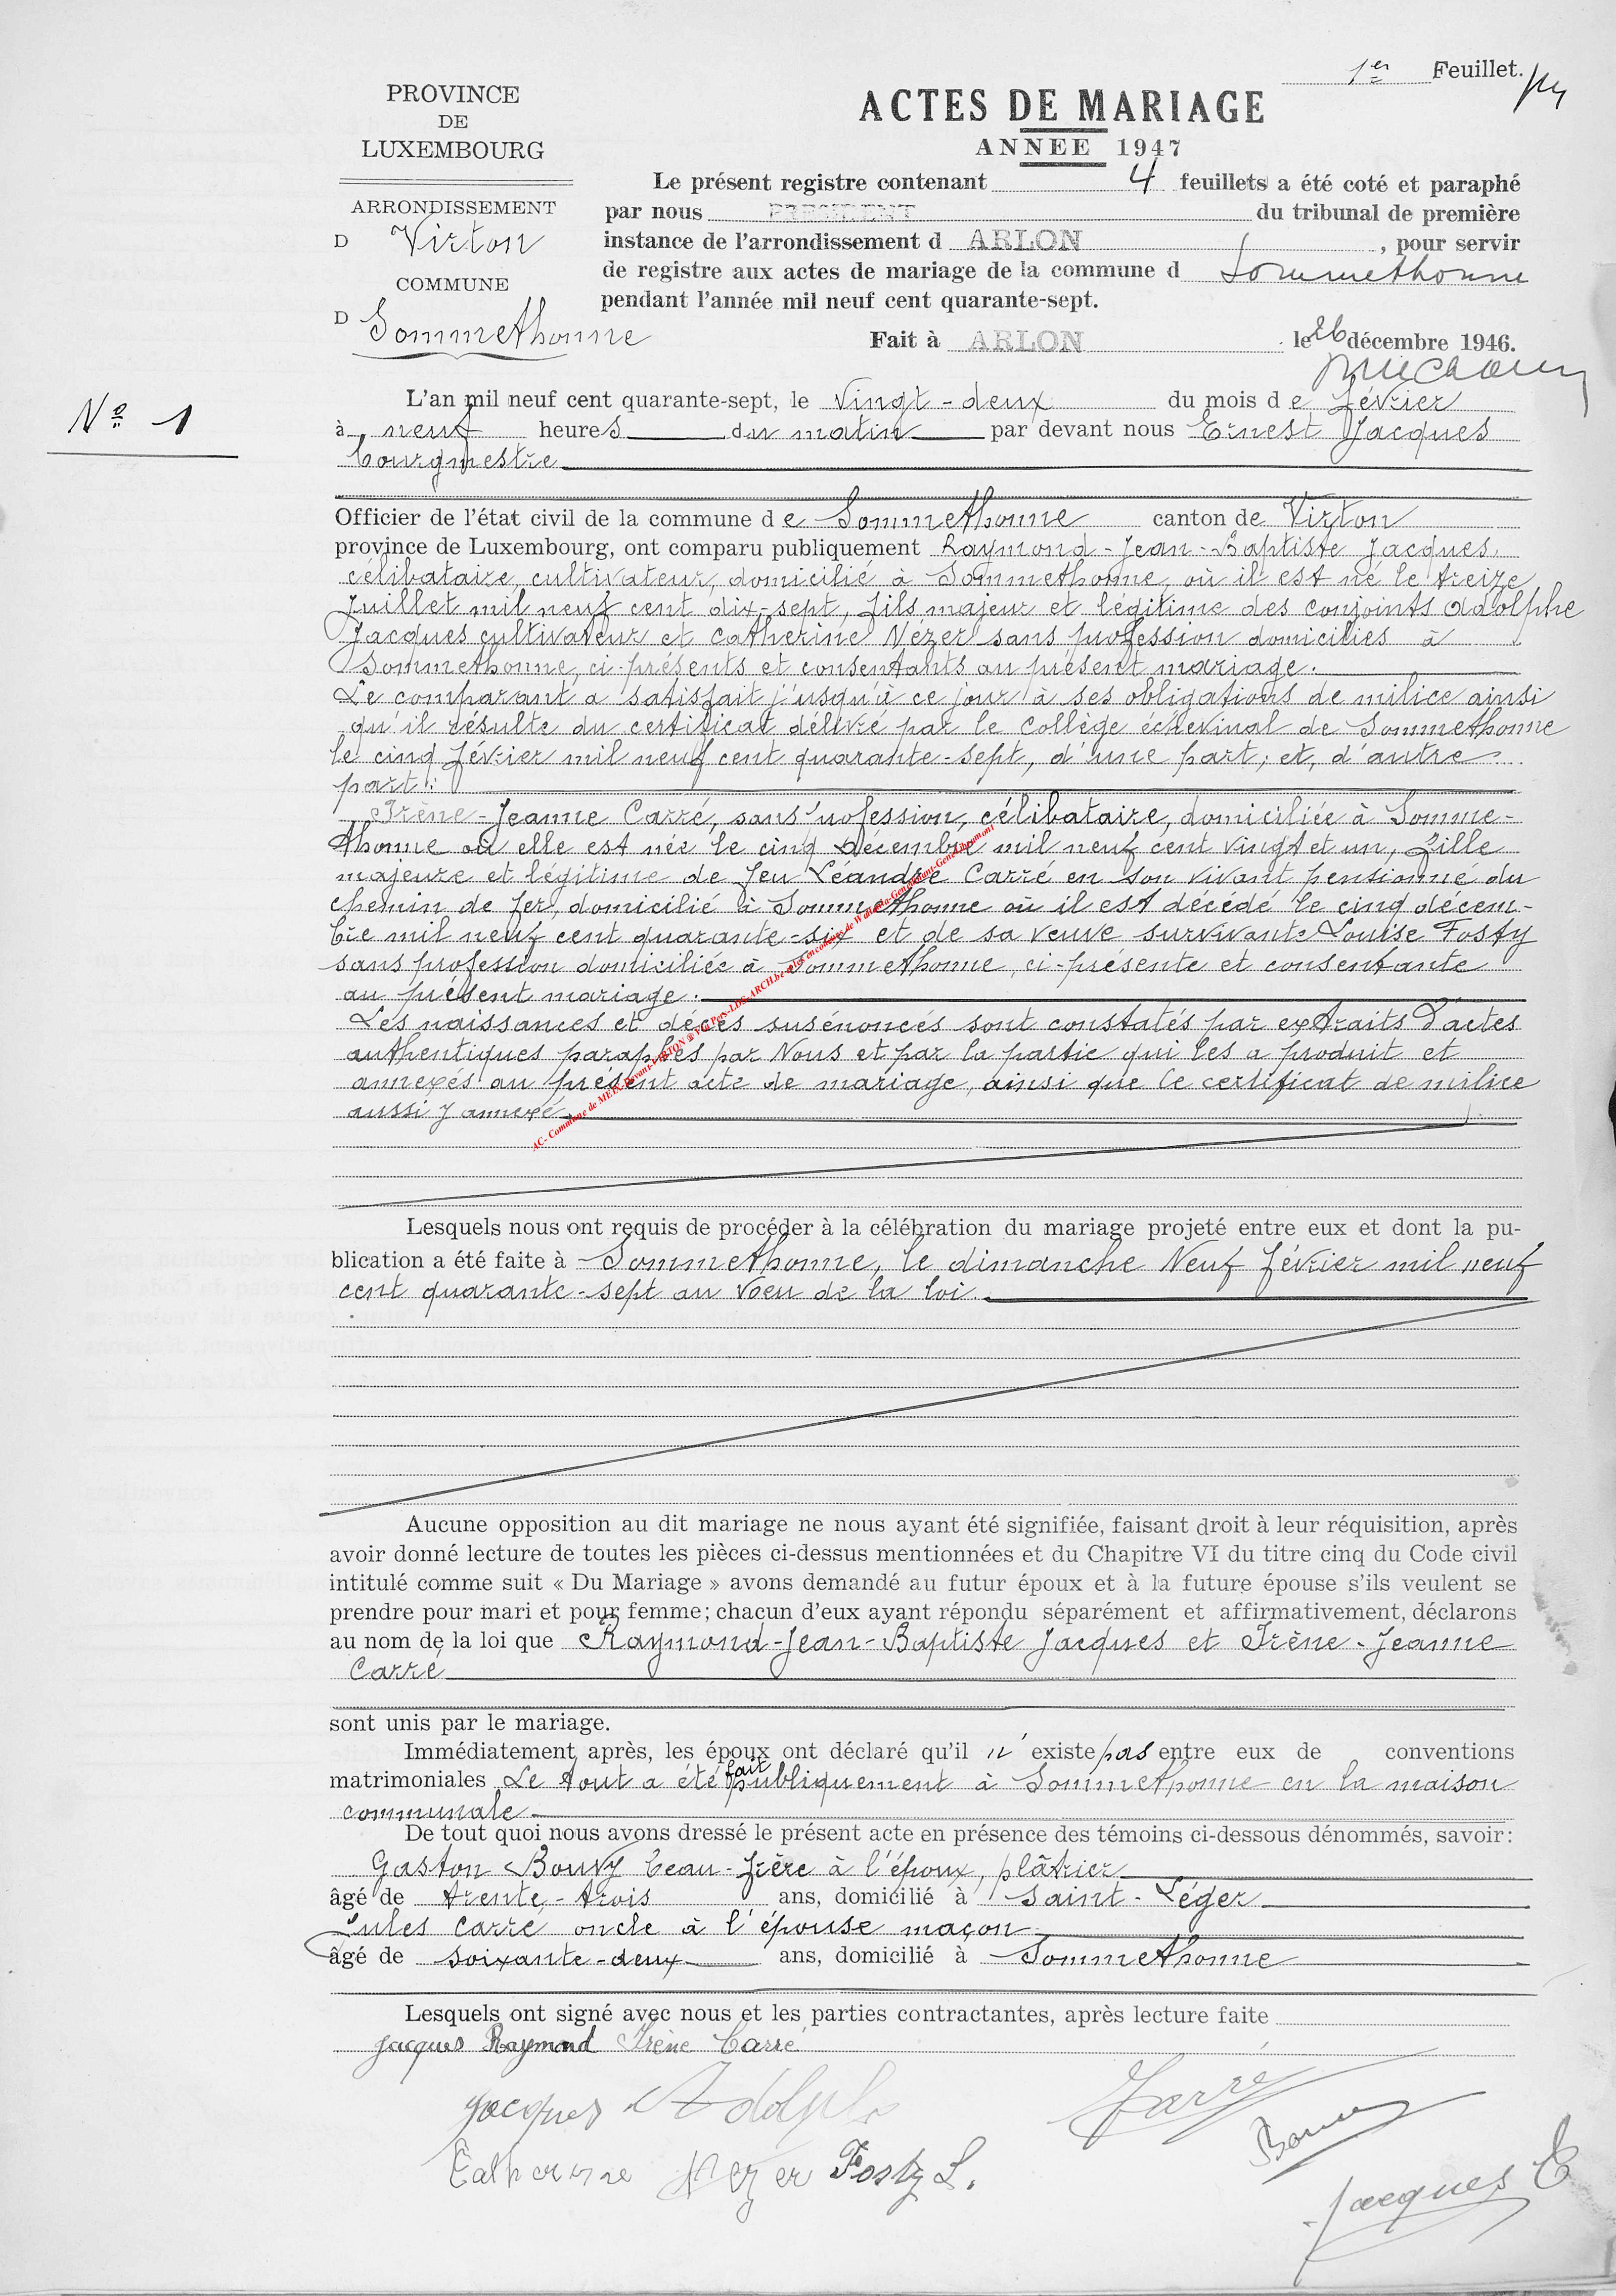 1er Feuillet.
PROVINCE
DE
LUXEMBOURG
ARRONDISSEMENT
D Virton
COMMUNE
D Sommethonne
ACTES DE MARIAGE
ANNEE 1947
Le présent registre contenant 4 feuillets a été coté et paraphé
par nous PRESIDENT du tribunal de première
instance de l'arrondissement d ARLON , pour servir
de registre aux actes de mariage de la commune d Sommethonne
pendant l'année mil neuf cent quarante-sept.
Fait à ARLON le 26 décembre 1946.
No 1
L'an mil neuf cent quarante-sept, le vingt-deux du mois d e février
à neuf heures du matin par devant nous Ernest Jacques
bourgmestre
Officier de l'état civil de la commune d e Sommethonne canton de Virton
province de Luxembourg, ont comparu publiquement Raymond-Jean-Baptiste Jacques,
célibataire, cultivateur, domicilié à Sommethonne, où il est né le treize
Juillet mil neuf cent dix-sept, fils majeur et légitime des conjoints Adolphe
Jacques cultivateur et Catherine Nézer sans profession domiciliés à
Sommethonne, ci-présents et consentants au présent mariage.
Le comparant a satisfait jusqu'à ce jour à ses obligations de milice ainsi
qu'il résulte du certificat délivré par le Collège échevinal de Sommethonne
le cinq février mil neuf cent quarante-sept, d'une part; et, d'autre
part:
Irène-Jeanne Carré, sans profession, célibataire, domiciliée à Somme-
thonne où elle est née le cinq décembre mil neuf cent vingt et un, fille
majeure et légitime de feu Léandre Carré en son vivant pensionné du
chemin de fer, domicilié à Sommethonne où il est décédé le cinq décem-
bre mil neuf cent quarante-six et de sa veuve survivante Louise Fosty
sans profession domiciliée à Sommethonne, ci-présente et consentante
au présent mariage.
Les naissances et décès susénoncés sont constatés par extraits d'actes
authentiques paraphés par Nous et par la partie qui les a produit et
annexés au présent acte de mariage, ainsi que le certificat de milice
aussi y annexé.
Lesquels nous ont requis de procéder à la célébration du mariage projeté entre eux et dont la pu-
blication a été faite à Sommethonne, le dimanche Neuf février mil neuf
cent quarante-sept au voeu de la loi.
Aucune opposition au dit mariage ne nous ayant été signifiée, faisant droit à leur réquisition, après
avoir donné lecture de toutes les pièces ci-dessus mentionnées et du Chapitre VI du titre cinq du Code civil
intitulé comme suit « Du Mariage » avons demandé au futur époux et à la future épouse s'ils veulent se
prendre pour mari et pour femme; chacun d'eux ayant répondu séparément et affirmativement, déclarons
au nom de la loi que Raymond-Jean-Baptiste Jacques et Irène-Jeanne
Carré
sont unis par le mariage.
Immédiatement après, les époux ont déclaré qu'il n' existe pas entre eux de conventions
matrimoniales Le tout a été fait publiquement à Sommethonne en la maison
communale
De tout quoi nous avons dressé le présent acte en présence des témoins ci-dessous dénommés, savoir:
Gaston Bouvy beau-frère à l'époux, plâtrier
âgé de trente-trois ans, domicilié à Saint-Léger
Jules Carré oncle à l'épouse maçon
âgé de soixante-deux ans, domicilié à Sommethonne
Lesquels ont signé avec nous et les parties contractantes, après lecture faite
Jacques Raymond Irène Carré
Jacques Adolphe Carré
Bouvy
Catherine Nezer Fosty L.
Jacques E